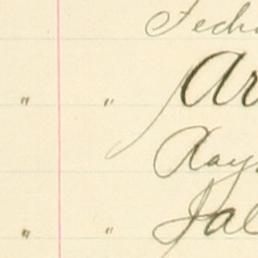 Fech
" " Ar
Ray
" " Jal